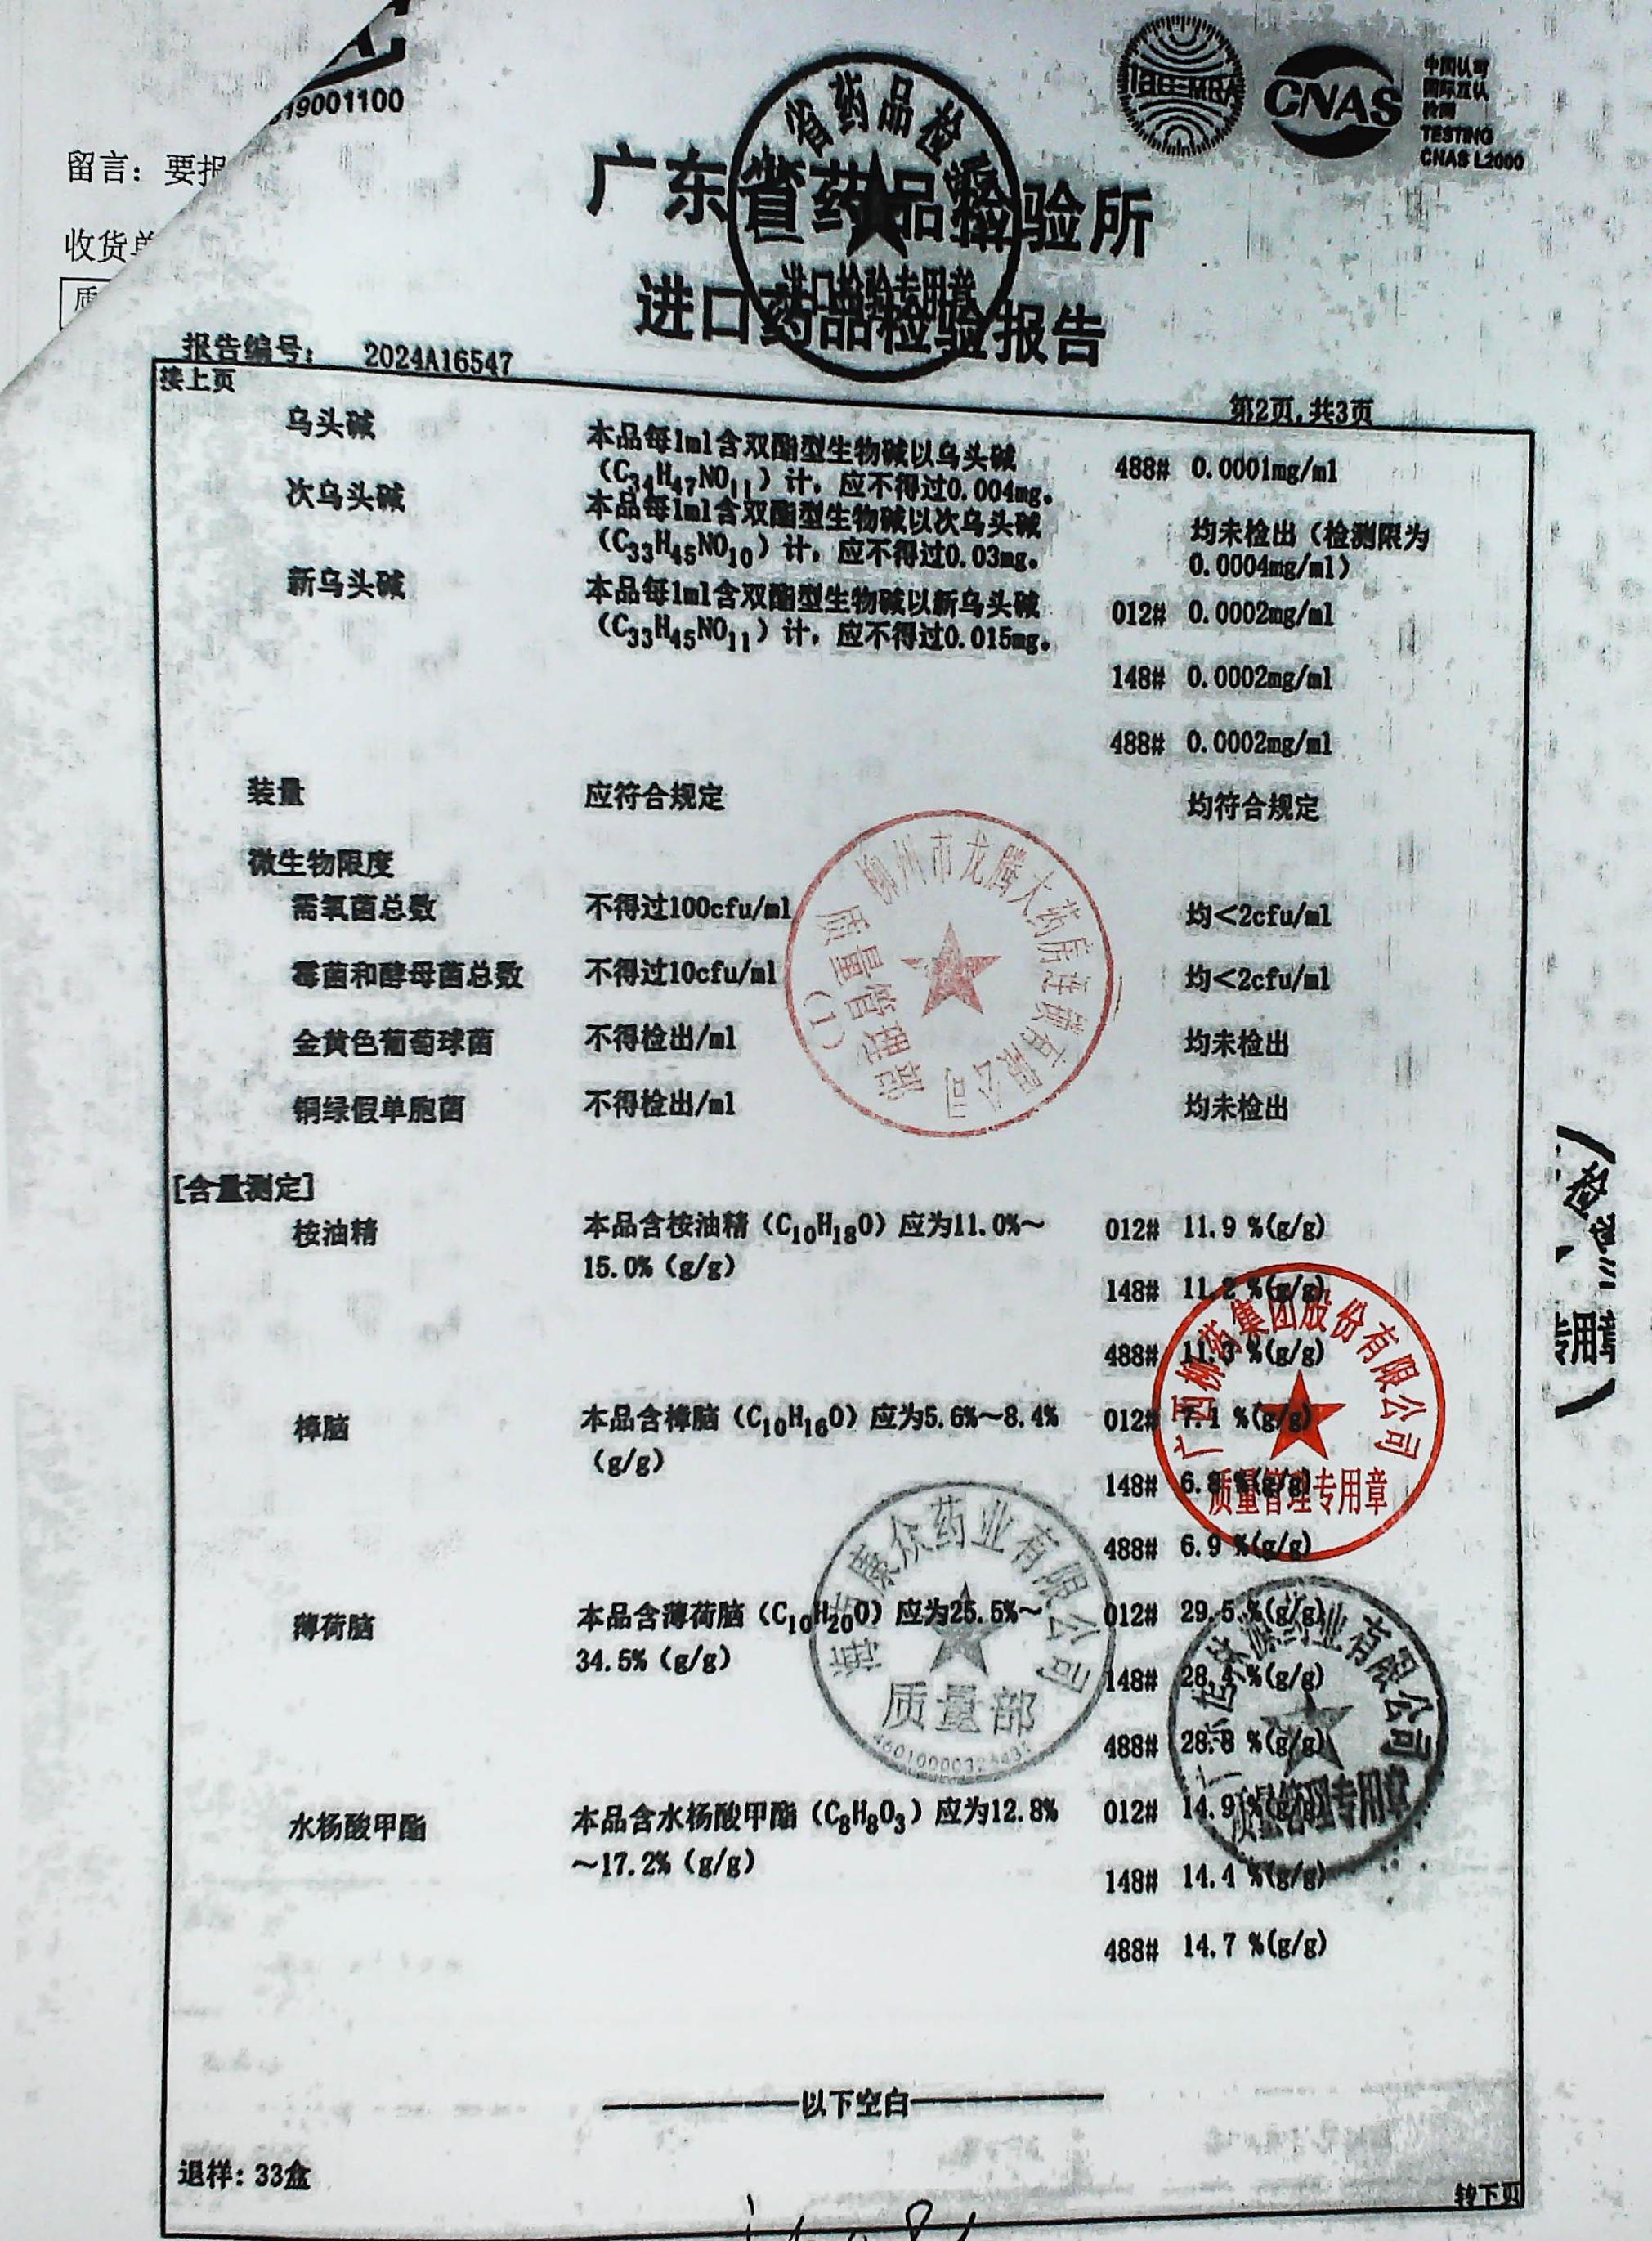 19001100
留言：要报
收货单
质
ilac-MRA
CNAS
中国认可
国际互认
检测
TESTING
CNAS L2000
省药品检验
广东省药品检验所
进口药品检验报告
报告编号： 2024A16547
第2页,共3页
接上页
乌头碱 本品每1ml含双酯型生物碱以乌头碱 488# 0.0001mg/ml
（C34H47NO11）计，应不得过0.004mg。
次乌头碱 本品每1ml含双酯型生物碱以次乌头碱 均未检出（检测限为
（C33H45NO10）计，应不得过0.03mg。 0.0004mg/ml）
新乌头碱 本品每1ml含双酯型生物碱以新乌头碱 012# 0.0002mg/ml
（C33H45NO11）计，应不得过0.015mg。
148# 0.0002mg/ml
488# 0.0002mg/ml
装量 应符合规定 均符合规定
微生物限度
需氧菌总数 不得过100cfu/ml 均＜2cfu/ml
霉菌和酵母菌总数 不得过10cfu/ml 均＜2cfu/ml
金黄色葡萄球菌 不得检出/ml 均未检出
铜绿假单胞菌 不得检出/ml 均未检出
柳州市龙腾大药房连锁有限公司
质量管理部
（1）
[含量测定]
桉油精 本品含桉油精（C10H18O）应为11.0%～ 012# 11.9 %(g/g)
15.0%（g/g）
148# 11.2 %(g/g)
488# 11.3 %(g/g)
樟脑 本品含樟脑（C10H16O）应为5.6%～8.4% 012# 7.1 %(g/g)
（g/g）
148# 6.8 %(g/g)
488# 6.9 %(g/g)
广西柳药集团股份有限公司
质量管理专用章
薄荷脑 本品含薄荷脑（C10H20O）应为25.5%～ 012# 29.5 %(g/g)
34.5%（g/g）
148# 28.4 %(g/g)
488# 28.8 %(g/g)
康众药业有限公司
质量部
药业有限公司
质量管理专用章
水杨酸甲酯 本品含水杨酸甲酯（C8H8O3）应为12.8% 012# 14.9 %(g/g)
～17.2%（g/g）
148# 14.4 %(g/g)
488# 14.7 %(g/g)
以下空白
退样：33盒
转下页
检
专用章